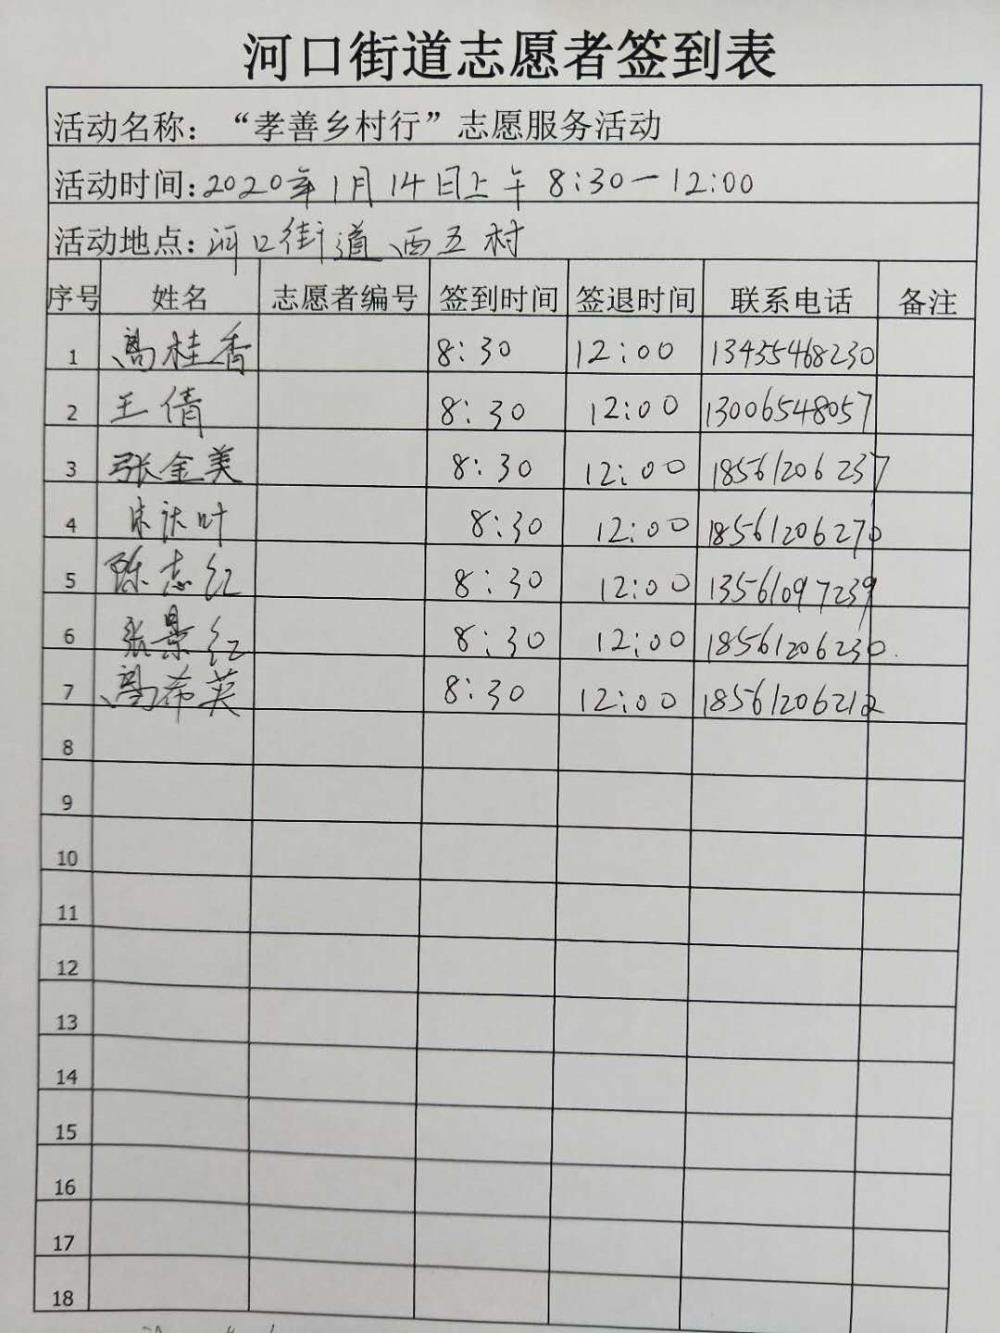 河口街道志愿者签到表
活动名称：“孝善乡村行”志愿服务活动
活动时间:2020年1月14日上午 8:30—12:00
活动地点:河口街道西五村
序号 姓名 志愿者编号 签到时间 签退时间 联系电话 备注
1 高桂香 8:30 12:00 13455468230
2 王倩 8:30 12:00 13006548057
3 张金美 8:30 12:00 18561206237
4 8:30 12:00 18561206270
5 陈志红 8:30 12:00 13561097239
6 张景红 8:30 12:00 18561206230.
7 高希英 8:30 12:00 18561206212
8
9
10
11
12
13
14
15
16
17
18